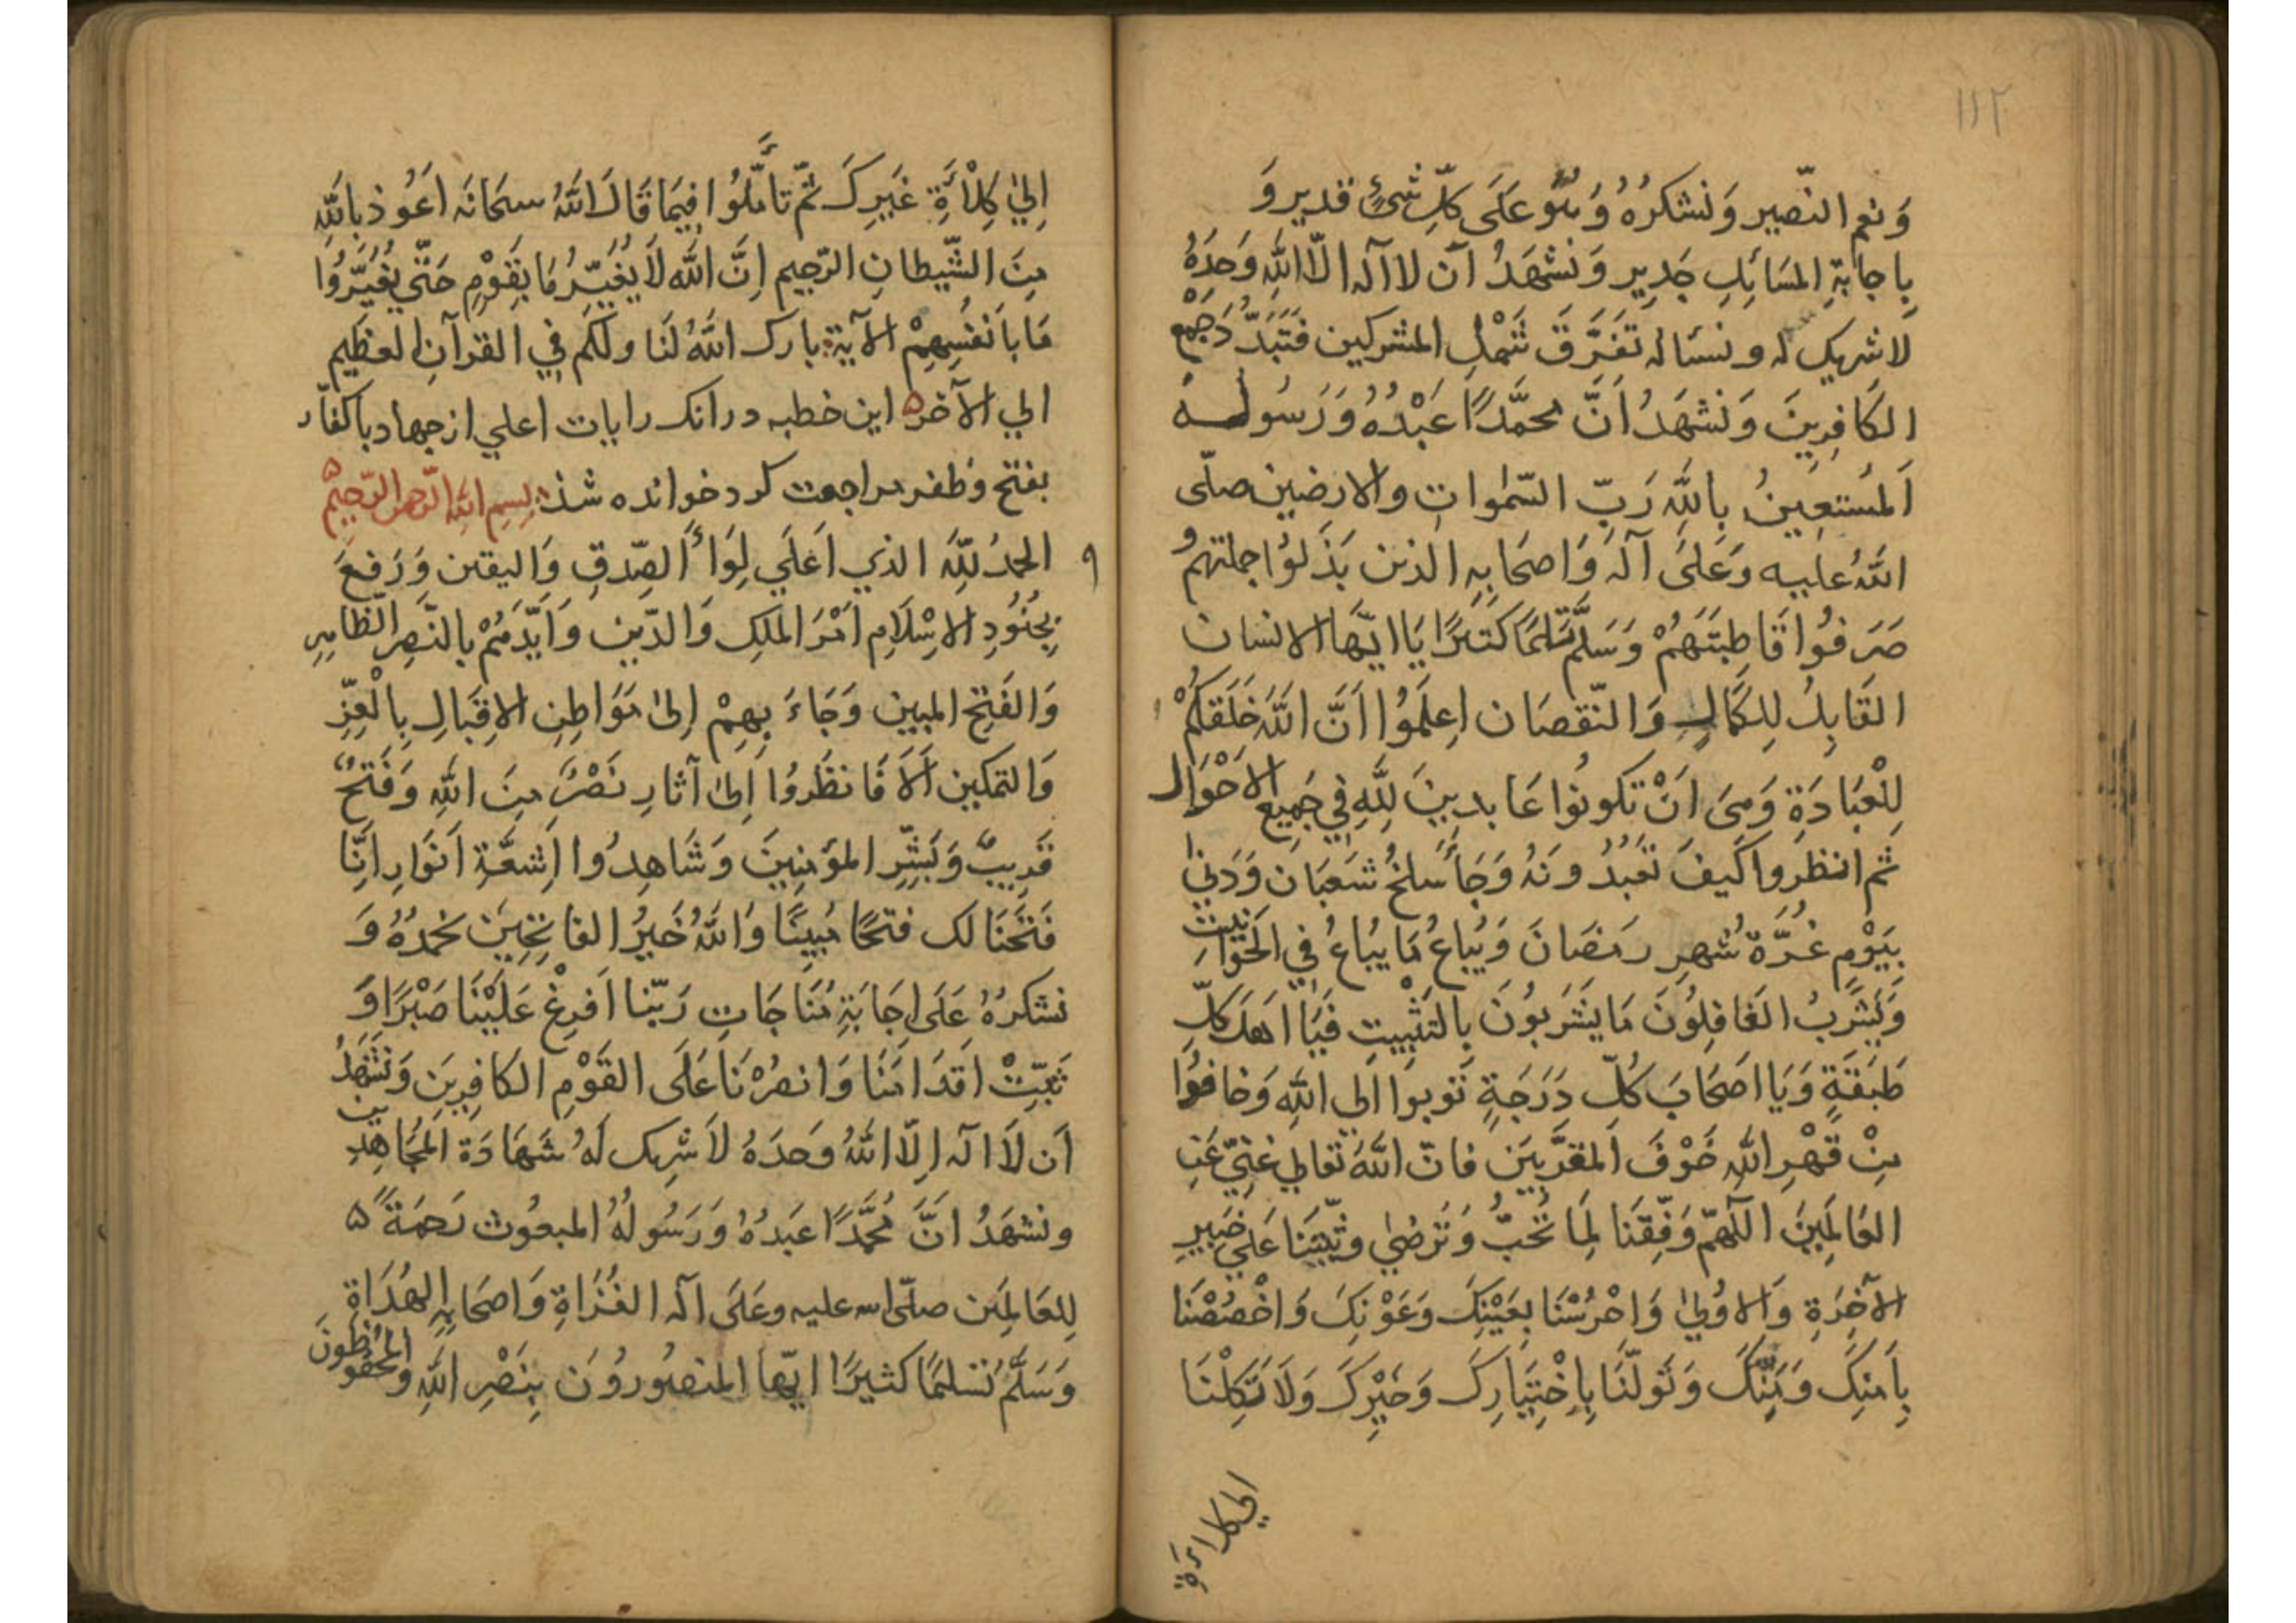 ١١٢
وَنعم النّصير وَنشكرُهُ وَهُو عَلَى كلّ شَىْءٍ قدير وَ
بِاجابةِ المسَائِلِ جَدِيرٍ وَنشهَدُ اَن لا اله الّا اللّٰهِ وَحدَهُ
لا شريك له و نسئاله تفَرَّقَ شَمْلِ المشركين فتَبَدَّدَ جَمْع
الكَافِرِينَ وَنَشهَدُ اَنَّ محمَّدًا عَبْدُهُ وَرَسُوله
اَلمُستعِينُ بِاللّٰهِ رَبّ السّمٰواتِ والارضين صلّى
اللّٰهُ عليه وَعَلَى آله وَاصحَابِهِ الذين بَذَلوُا جملتهُم
صَرَفوُا قَاطِبتَهُمْ وَسَلَّم تَسْلِيمًا كَثيرًا يَا ايّها الانسان
القَابِلُ لِلكَمَالِ وَالنّقصَان اِعلَمُوا اَنَّ اللّٰهَ خَلَقكُمْ
لِلْعبَادَةِ وَمىَ اَنْ تكونوُا عَابدِينَ لِلّٰهِ فِي جَمِيعِ الاحْوَال
ثم انظروا كَيفَ تَعبُدُونَهُ وَجَاَ سَلخُ شَعبَان وَدَنٰي
بِيَوْمِ غُرَّة شَهرِ رمَضَانَ وَيُباعُ مَا يبُاعُ فِي الحَوَانِيت
وَيَشْرَبُ الغَافِلوُنَ مَا يَشرَبوُنَ بِالتَّثْبِيتِ فيَا اهَلَ كلّ
طَبَقَةٍ وَيَا اصَحَابَ كُلّ دَرَجَةٍ تَوبوا اَلي اللّٰهِ وَخافوُا
مِنْ قَهْرِ اللّٰهِ خَوْفَ المقَرَّبِينَ فانّ اللّٰهَ تعَالي غنِيّ عَنِ
العَالَمِينَ اللّهمّ وَفّقنَا لِمَا تُحبُّ وَتَرضٰي وثبّتنَا عَلي خيرِ
الآخِرَةِ وَالاوُلٰي وَاحْرُسْنَا بِعَيْنِكَ وَعَوْنِكَ وَاخْصُصْنَا
بِاَمنِكَ وَمَنِّكَ وَتَولّنَا بِاِخْتِيَارِكَ وَخَيْرِكَ وَلَا تَكِلْنَا
الي كلاءة
اِلي كِلْاءَةِ غَيرِكَ ثمّ تأمَّلُوا فِيمَا قَالَ اللّٰهُ سبحَانَه اعَوُذ بِاللّٰهِ
مِنَ الشّيطانِ الرّجيم اِنَّ اللّٰه لَا يغُيّرُ مَا بِقَوْمٍ حَتّي يُغيِّرُوا
مَا باَنفُسِهِمْ الآية بارك اللّٰهُ لَنَا ولَكُم فِي القرآنِ العظيم
الي الآخره اين خطبه درانك رايات اعلي از جهاد با كفّار
بفتح وظفر مراجعت كرد خوانده شد بِسمِ اللّٰهِ الرّحمٰن الرّحيم
الحمدُ لِلّٰهِ الذي اَعلَي لِوَاءَ الصِّدقِ وَاليقين وَرَفَعَ
بِجُنُودِ الاِسْلَامِ اَمْرَ المَلِكِ وَالدّينِ وَاَيّدَهُمْ بِالنّصرِ الظاهِرِ
وَالفَتحِ المبين وَجَاءَ بِهِمْ اِلىٰ مَوَاطِنِ الاِقبَالِ بِالْعِزِّ
وَالتمكين اَلاَ فَانظُروُا اِلىٰ آثارِ نَصْرٌ مِنَ اللّٰهِ وَفَتحٌ
قَرِيبٌ وَبَشّرِ المؤمنِينَ وَشَاهِدُوا اَشِعَّةِ اَنوَارِ اِنَّا
فَتَحَنَا لك فتحًا مُبِينًا وَاللّٰهُ خَيرُ الفَاتِحِينَ نحمَدُهُ وَ
نشكرُهُ عَلَى اِجَابَةِ مُنَاجَاتِ رَبّنا اَفرِغْ عَلَيْنَا صَبْرًا وَ
ثَبِّتْ اَقدَامَنَا وَانصُرْنَا عَلَى القَوْمِ الكَافِرِينَ وَنشَهَدُ
اَن لَا اله اِلّا اللّٰهُ وَحدَهُ لاَ شرِيك لَهُ شَهَادَة المجُاهِدِين
ونشهَدُ انَّ مُحمَّدًا عَبدُهُ وَرَسُولُهُ المبعُوث رَحمَةً
لِلعَالمَين صلّى الله عليه وعَلَى اله الغُزَاةِ وَاصحَابِهِ الهُدَاةِ
وَسَلَّمَ تَسليمًا كثيرًا ايّها المنصُوروُنَ بِنَصْرِ اللّٰهِ والمحفُوظونَ